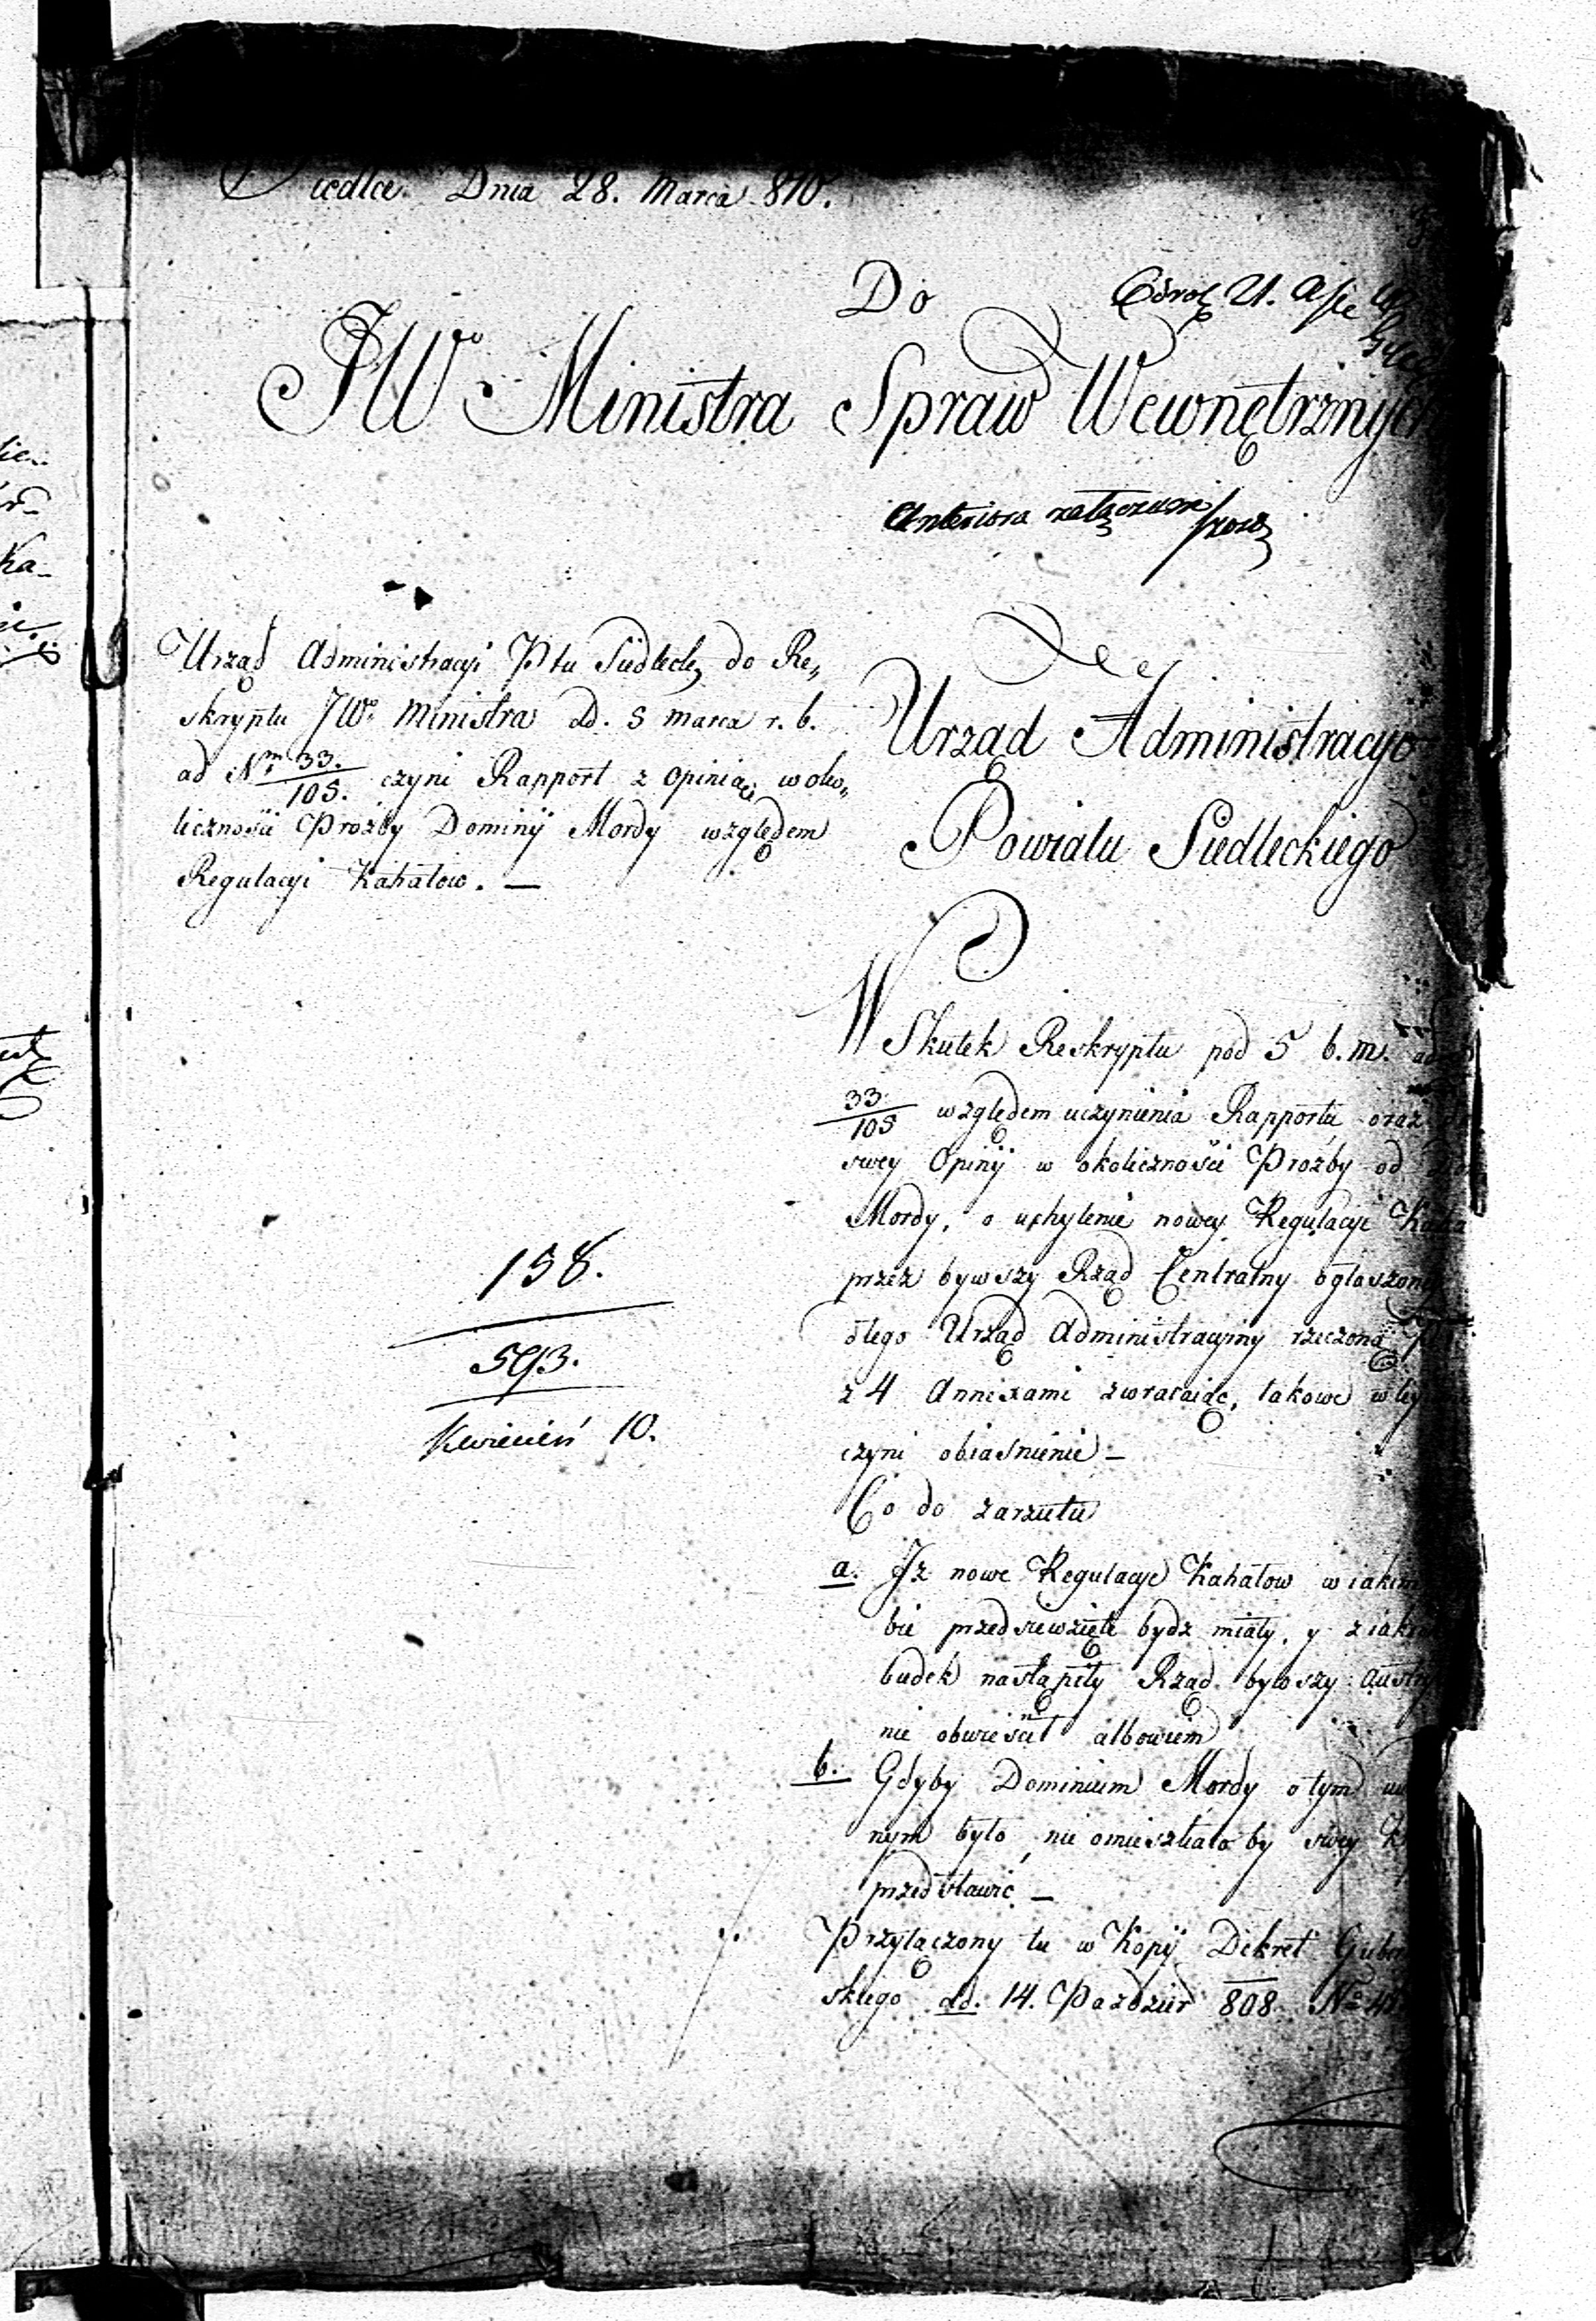 Siedlce Dnia 28. Marca 810.
Do
JWo Ministra Spraw Wewnętrznych
Anteriora załączone
Urząd Administracyi Ptu Siedleckº do Re„
skryptu JWo Ministra dd. 5 marca r. b.
ad Nrm 33./105. czyni Rapport z opinią w oko„
liczności Prozby Dominij Mordy względem
Regulacyi Kahałow. —
Urząd Administracyi
Powiatu Siedleckiego
W Skutek Reskryptu pod 5 b. m. ad
33./105 względem uczynienia Rapportu oraz
swey Opinij w okoliczności Prożby od
Mordy, o uchylenie nowey Regulacyi
przez bywszy Rząd Centralny
Urząd Administracyiny rzeczoną
z 4 Annexami zwracaiąc, takowe
czyni obiaśnienie —
Co do zarzutu
a. Jż nowe Regulacye Kahałow w
bie przedsiewzięte bydz miały, y z
budek nastąpiły Rząd bywszy
nie obwieścił albowiem
b. Gdyby Dominium Mordy o tym
nym było, nie omieszkało by swey
przedstawić —
Przyłączony tu w Kopij Dekret
skiego dd. 14. Pazdzier 808. No
158.
593.
Kwiecień 10.